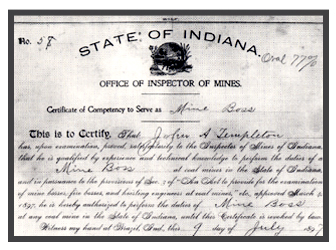 No. 58
STATE OF INDIANA.
Oral 77%
OFFICE OF INSPECTOR OF MINES.
Certificate of Competency to Serve as Mine Boss
This is to Certify, That A Templeton
has, upon examination, proved satisfactorily to the Inspector of Mines of Indiana,
that he is qualified by experience and technical knowledge to perform the duties of a
Mine Boss at coal mines in the State of Indiana,
and in pursuance to the provisions of Sec. of "An Act to provide for the examination
of mine bosses, fire bosses, and hoisting engineers at coal mines," etc., approved March
1897, he is hereby authorized to perform the duties of Mine Boss
at any coal mine in the State of Indiana, until this Certificate is revoked by law.
Witness my hand at Brazil, Ind., this 9 day of July 189